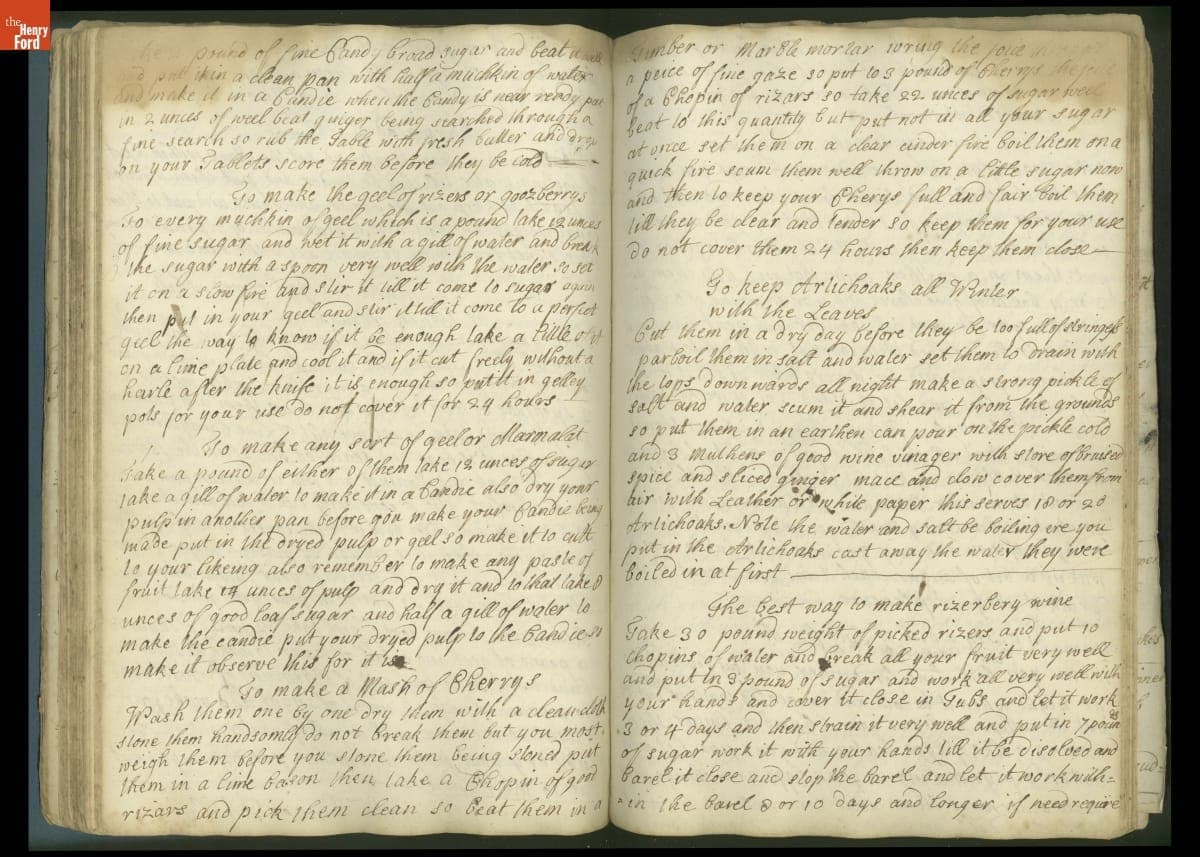 the Henry Ford
pound of fine Candy broad sugar and beat it well
and put it in a clean pan with half a muchkin of water
and make it in a Candie when the Candy is near ready put
in 2 unces of weel beat ginger being searched through a
fine search so rub the Table with fresh butter and drop
on your Tablets score them before they be cold
To make the geel of rizers or goozberrys
To every muchkin of geel which is a pound take 12 unces
of fine sugar and wet it with a gill of water and break
the sugar with a spoon very well with the water so set
it on a slow fire and stir it till it come to sugar again
then put in your geel and stir it till it come to a perfect
geel the way to know if it be enough take a little of it
on a time plate and cool it and if it cut freely without a
harle after the knife it is enough so putt it in gelley
pots for your use do not cover it for 24 hours
To make any sort of geel or Marmalat
Take a pound of either of them take 12 unces of sugar
take a gill of water to make it in a Candie also dry your
pulp in another pan before you make your Candie being
made put in the dryed pulp or geel so make it to cutt
to your likeing also remember to make any paste of
fruit take 14 unces of pulp and dry it and to that take 8
unces of good loaf sugar and half a gill of water to
make the candie put your dryed pulp to the Candie so
make it observe this for it is
To make a Mash of Cherrys
Wash them one by one dry them with a clean cloth
stone them handsomly do not break them but you most
weigh them before you stone them being stoned put
them in a time bason then take a Chopin of good
rizars and pick them clean so beat them in a
Timber or Marble mortar wring the
a peice of fine gaze so put to 3 pound of Cherrys the
of a Chopin of rizars so take 22 unces of sugar weel
beat to this quantity but put not in all your sugar
at once set them on a clear cinder fire boil them on a
quick fire scum them well throw on a litle sugar now
and then to keep your Cherys full and fair boil them
till they be clear and tender so keep them for your use
do not cover them 24 hours then keep them close
To keep Artichoaks all Winter
with the Leaves
Cut them in a dry day before they be too full of stringess
parboil them in salt and water set them to drain with
the tops downwards all night make a strong pickle of
salt and water scum it and shear it from the grounds
so put them in an earthen can pour on the pickle cold
and 3 Muthens of good wine vinager with store of bruised
spice and sliced ginger mace and clow cover them from
air with Leather or white paper this serves 18 or 20
Artichoaks. Note the water and salt be boiling ere you
put in the Artichoaks cast away the water they were
boiled in at first
The best way to make rizerbery wine
Take 30 pound weight of picked rizers and put 10
Chopins of water and break all your fruit very well
and put in 3 pound of sugar and work all very well with
your hands and cover it close in Tubs and let it work
3 or 4 days and then strain it very well and put in 7 pound
of sugar work it with your hands till it be disolved and
barel it close and stop the barel and let it work with=
in the barel 8 or 10 days and longer if need require